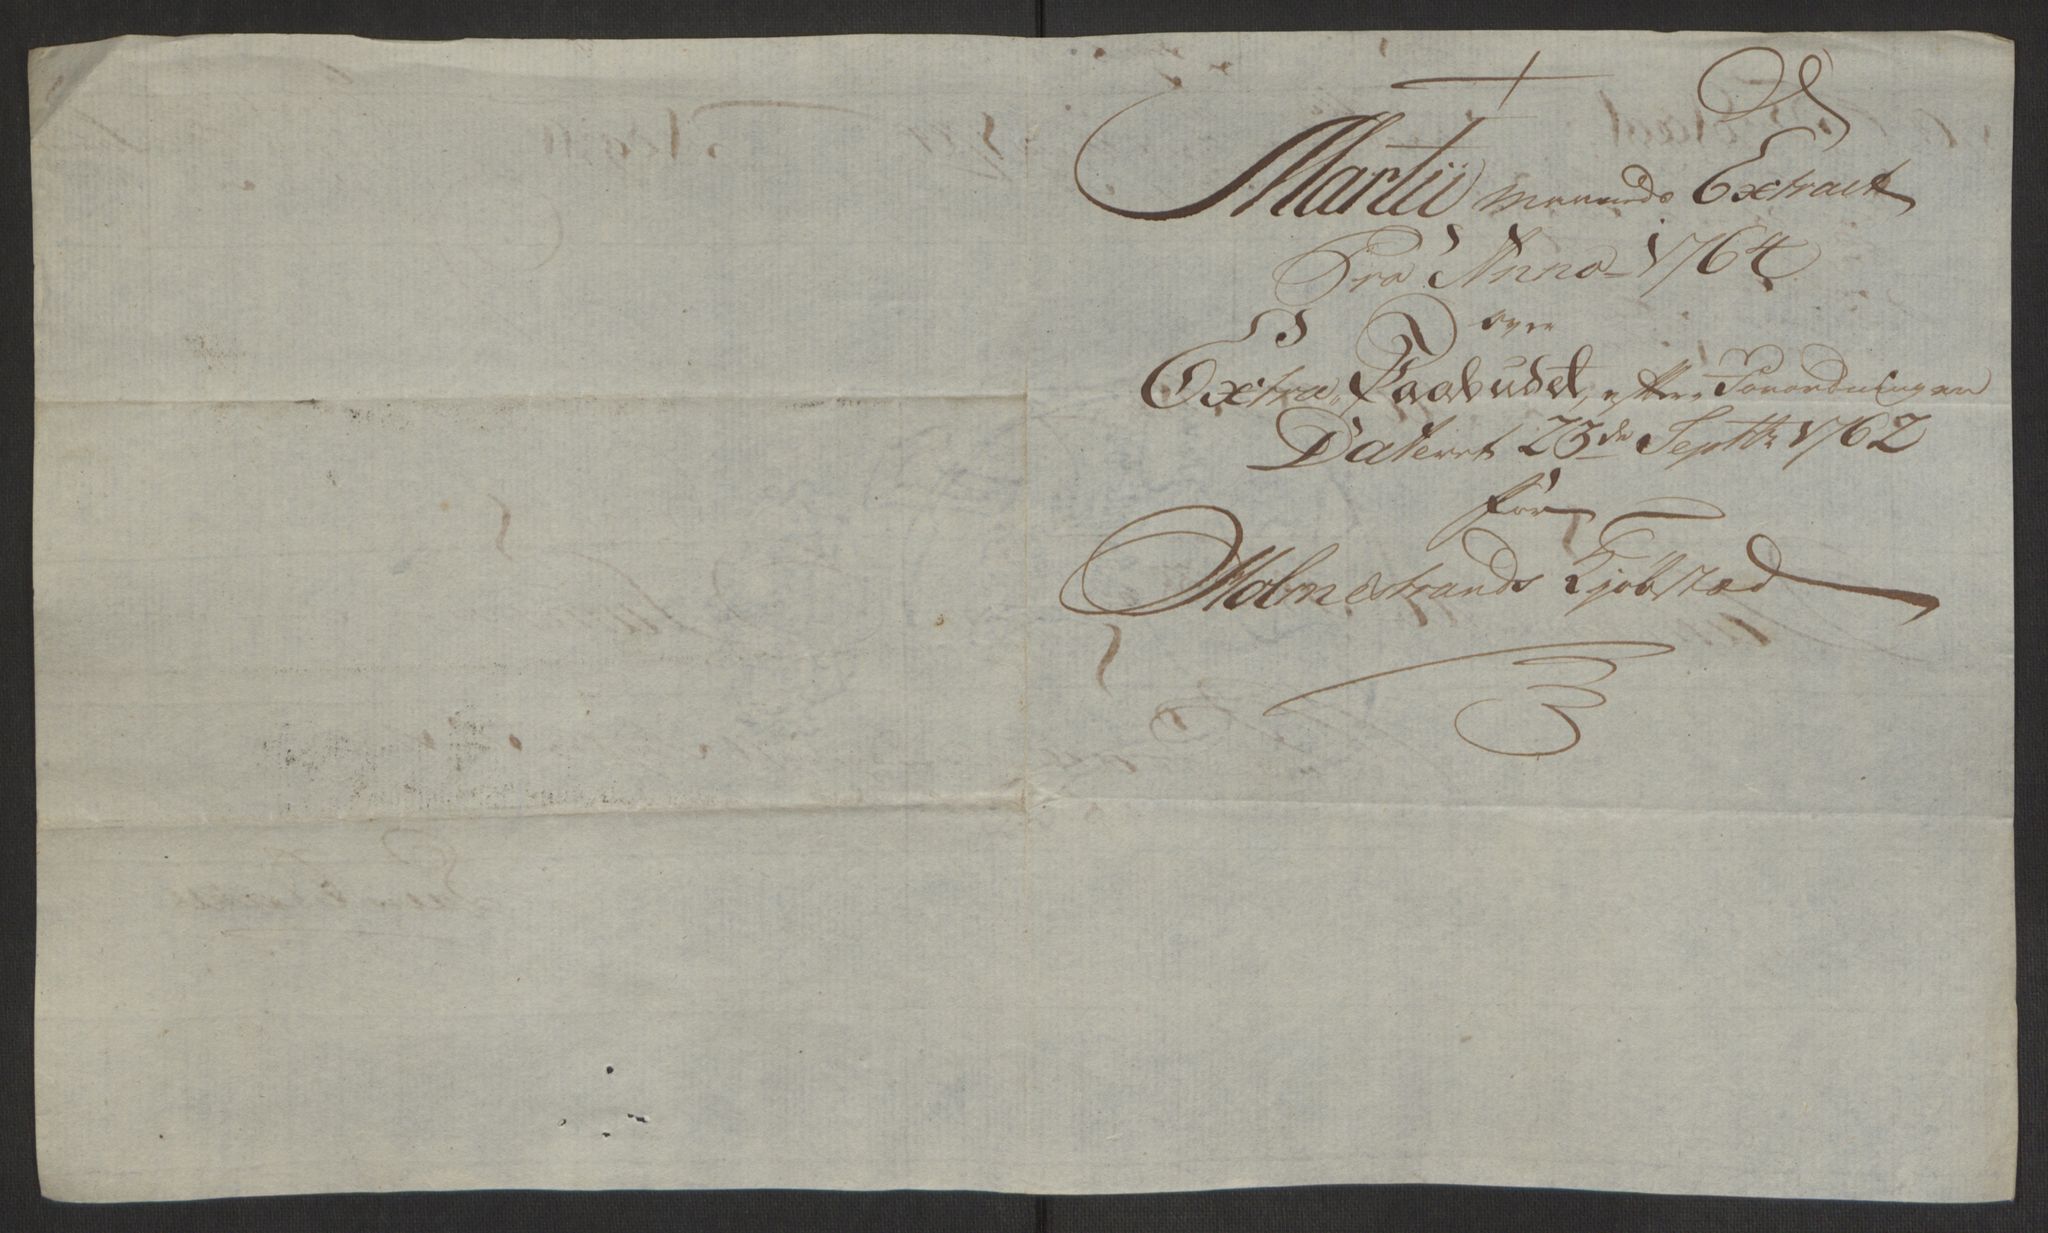 Martii Maaneds Extract
Pro Anno 1764
over
Extra Paabudet, efter Forordningen
Dateret 23de Septbr 1762
for
Holmestrands Kjöbstæd